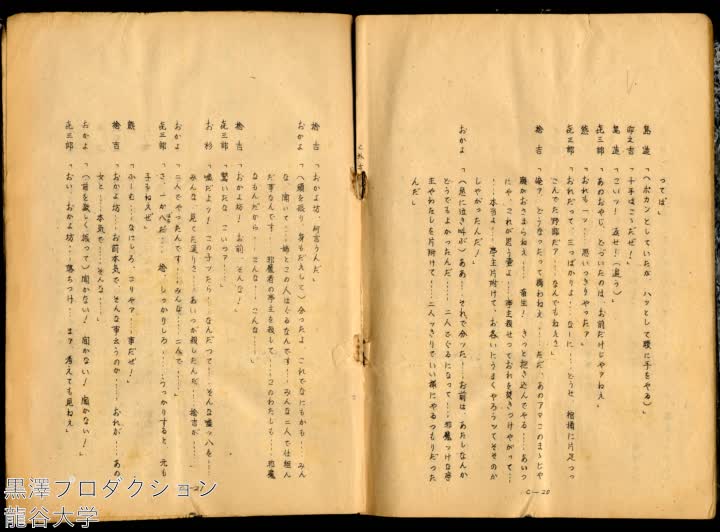 つてば」
島造「(ポカンとしていたが、ハッとして腰に手をやる)」
卯之吉「十手はこゝだぜ!」
島造「こいツ! 返せ! (追う)
喜三郎「あのおやじ、とゞいたのは、お前だけじやアねえ」
熊「おれも一ッ… 思いつきりやったァ」
喜三郎「おれだって、三つばかりよ…なーに…どうせ、棺桶に片足つっ
こんでた野郎だァ…なんでもねえさ」
捨吉「俺ァ、どうなったって構わねえ……ただ、あのアマこのまゝじや
腹がおさまらねえ… 畜生! きっと抱き込んでやる……あいつ
にや、これが思う壷よ…亭主殺せっておれを焚きつけやがって…
…本当よ…亭主片附けて、お各いにうまくやろうッてそそのか
しやがったんだ!」
おかよ「(ヘ足に泣き叫ぶ)ああ……それで分った…お前は、あたしなんか
どうでもよかったんだ……二人でぐるになって…邪魔っけな亭
主やわたしを片附けて……二人ッきりでいい様にやるつもりだった
んだ」
C-20
捨吉「おかよ坊、何言うんだ」
おかよ「(頭を振り、身もだえして)分ったよ、これでなにもかも……みん
な、聞いて……姉とこの人はぐるなんです…みんな二人で仕組ん
だ事なんです…邪魔者の亭主を殺して…このわたしも…邪魔
なもんだから……こんな…こんな……」
捨吉「おかよ坊! お前、そんな!」
喜三郎「驚いたな、こいつァ…」
お杉「嘘だよッ! この子ッたら…なんだって…そんな嘘ッ八を…
みんな、見てた通りさ…あいつが殺したんだ…捨吉が……」
おかよ「二人でやったんです…みんな…二人で……」
喜三郎「さ、一か八だ…捨、しっかりしろ……うっかりすると、元も
子もねえぜ」
熊「ふーむ、なにしろ、こりやァ…事だぜ!」
捨吉「おかよ坊…お前本気で、そんな事云うのか……おれが…あの
女と……本気で……そんな」
おかよ「(首を激しく振って)聞かない! 聞かない! 聞かない!」
喜三郎「おい、おかよ坊…落ちつけ…まァ、考えても見ねえ」
黒澤プロダクション
龍谷大学